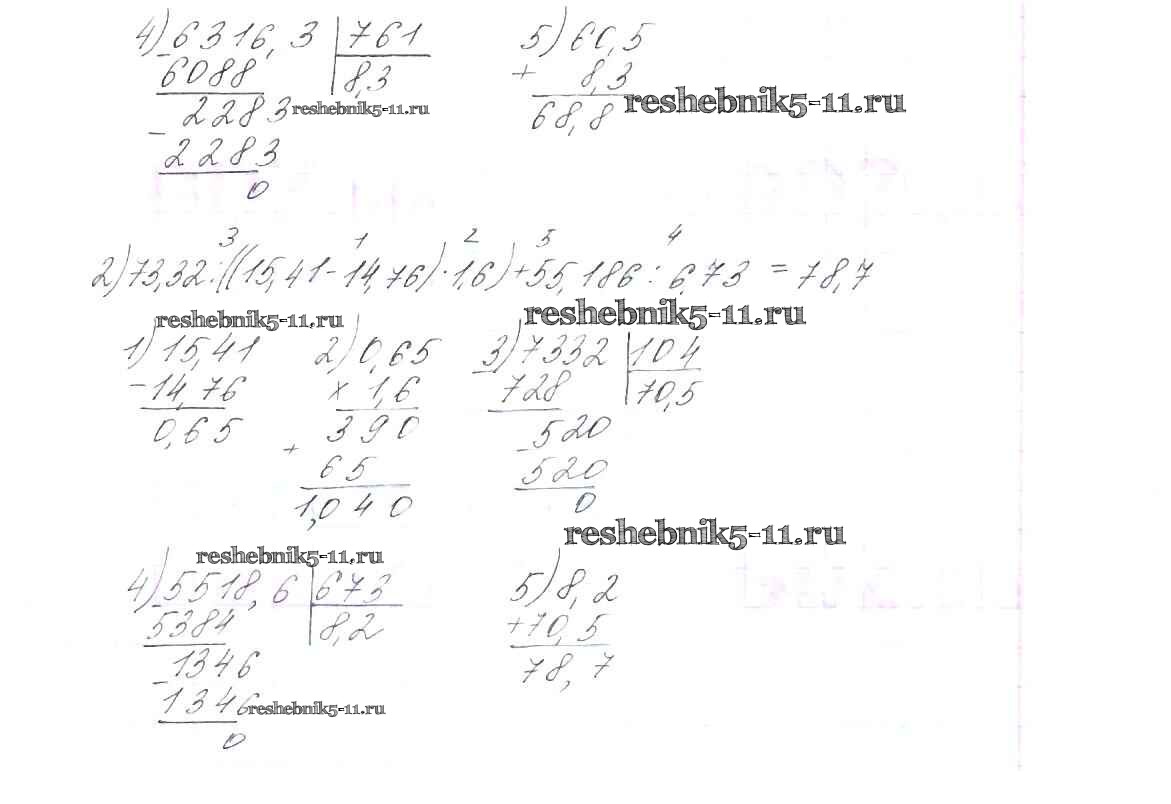 4) 6316,3 | 761   5) 60,5
- 6088 | 8,3   + 8,3
reshebnik5-11.ru   reshebnik5-11.ru
2283   68,8
- 2283
0
3 1 2 5 4
2) 73,32 : ((15,41 - 14,76) · 1,6) + 55,186 : 6,73 = 78,7
reshebnik5-11.ru   reshebnik5-11.ru
1) 15,41   2) 0,65   3) 7332 | 104
- 14,76   × 1,6   - 728 | 70,5
0,65   390   520
+ 65   - 520
1,040   0
reshebnik5-11.ru   reshebnik5-11.ru
4) 5518,6 | 673   5) 8,2
- 5384 | 8,2   + 70,5
1346   78,7
- 1346 reshebnik5-11.ru
0